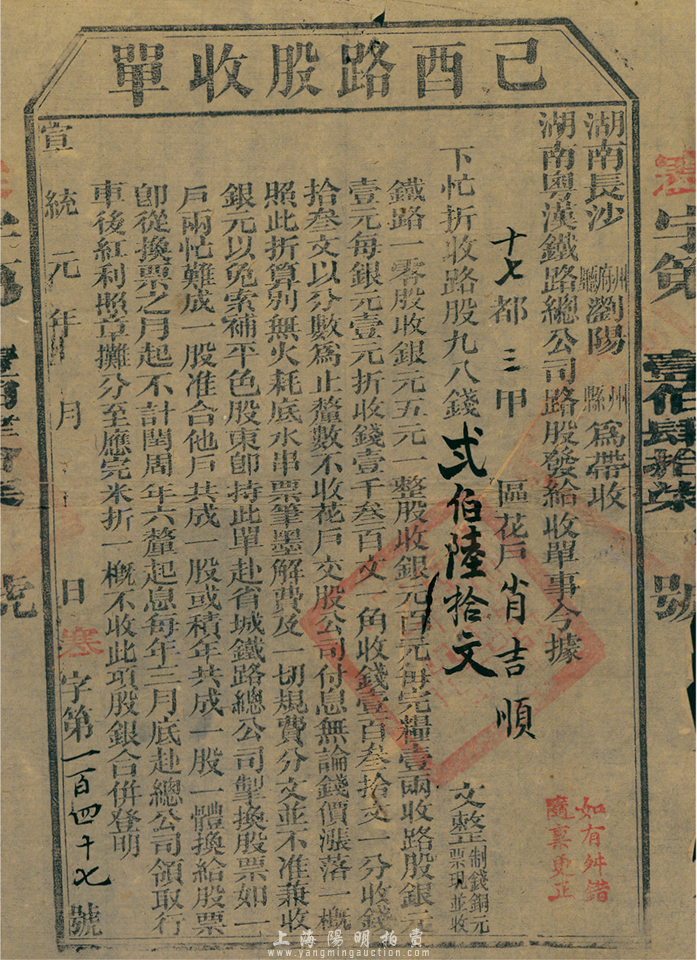 己酉路股收單
湖南長沙府廳州瀏陽縣州為帶收
湖南粵漢鐵路總公司路股發給收單事今據
十七都三甲 區花戶肖吉順
下忙折收路股九八錢弍佰陸拾文 文整 制錢銅元票現並收
鐵路 零股收銀元五元一整股收銀元百元每完糧壹兩收路股銀元
壹元每銀元壹元折收錢壹千叁百文一角收錢壹百叁拾文一分收錢
拾叁文以分數為止釐數不收花戶交股公司付息無論錢價漲落一概
照此折算別無火耗底水串票筆墨解費及一切規費分文並不准兼收
銀元以免索補平色股東卽持此單赴省城鐵路總公司掣換股票如一
戶兩忙難成一股准合他戶共成一股或積年共成一股一體換給股票
卽從換票之月起不計閏周年六釐起息每年三月底赴總公司領取行
車後紅利照章攤分至應完米折一概不收此項股銀合併登明
宣統元年 月 日 寒字第一百四十七號
如有舛錯
隨稟更正
字第壹佰肆拾柒號
字第
號
上海陽明拍賣
www.yangmingauction.com